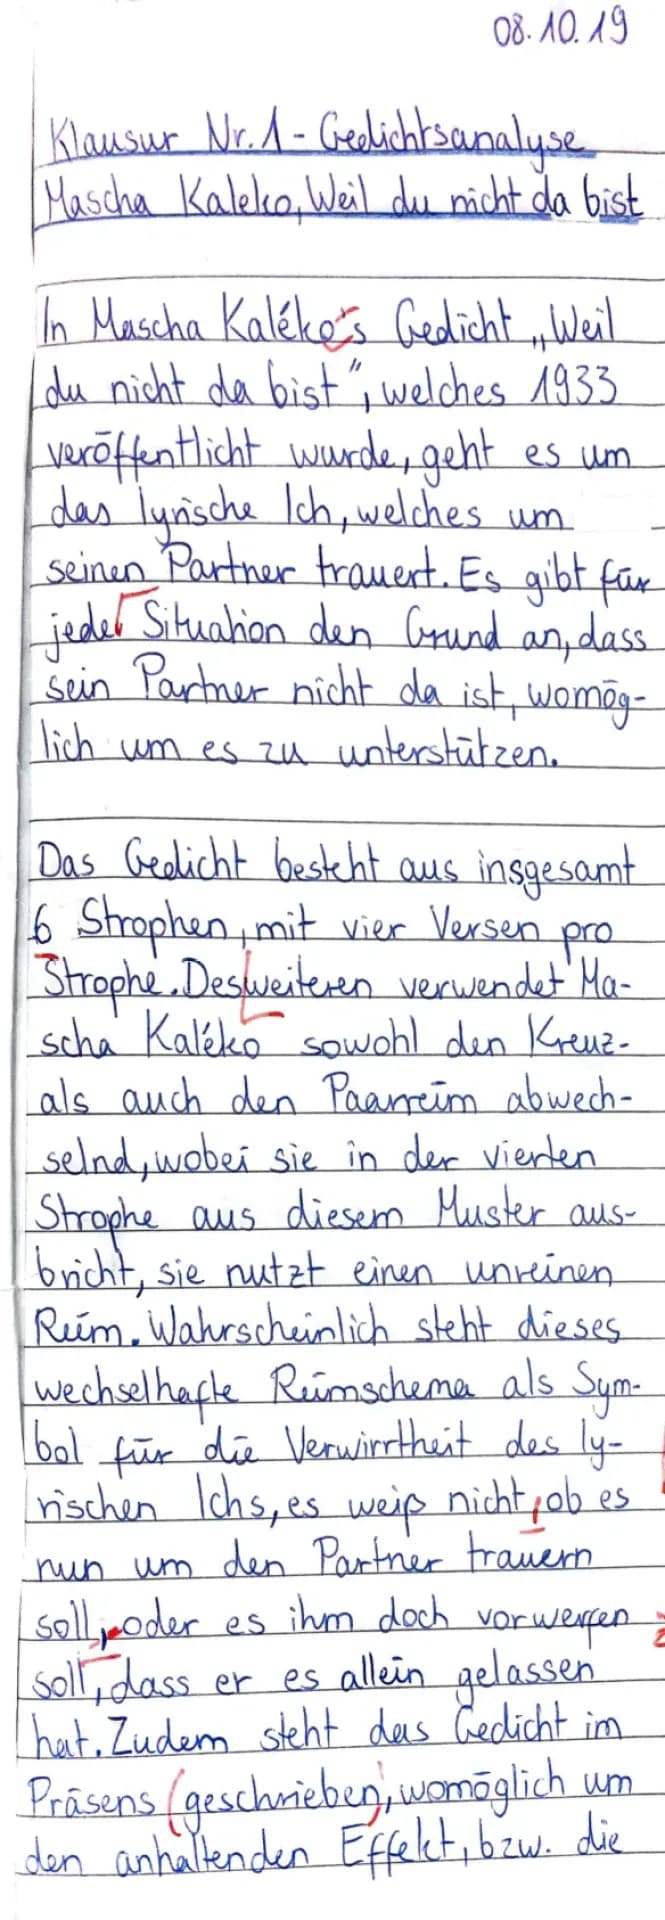 08.10.19
Klausur Nr.1 - Gedichtsanalyse
Mascha Kaleko, Weil du nicht da bist
In Mascha Kaléko's Gedicht „Weil
du nicht da bist", welches 1933
veröffentlicht wurde, geht es um
das lyrische Ich, welches um
seinen Partner trauert. Es gibt für
jede Situation den Grund an, dass
sein Partner nicht da ist, womög-
lich um es zu unterstützen.
Das Gedicht besteht aus insgesamt
6 Strophen, mit vier Versen pro
Strophe. Desweiteren verwendet Ma-
scha Kaléko sowohl den Kreuz-
als auch den Paarreim abwech-
selnd, wobei sie in der vierten
Strophe aus diesem Muster aus-
bricht, sie nutzt einen unreinen
Reim. Wahrscheinlich steht dieses
wechselhafte Reimschema als Sym-
bol für die Verwirrtheit des ly-
rischen Ichs, es weiß nicht, ob es
nun um den Partner trauern
soll, oder es ihm doch vorwerfen
soll, dass er es allein gelassen
hat. Zudem steht das Gedicht im
Präsens (geschrieben), womöglich um
den anhaltenden Effekt, bzw. die